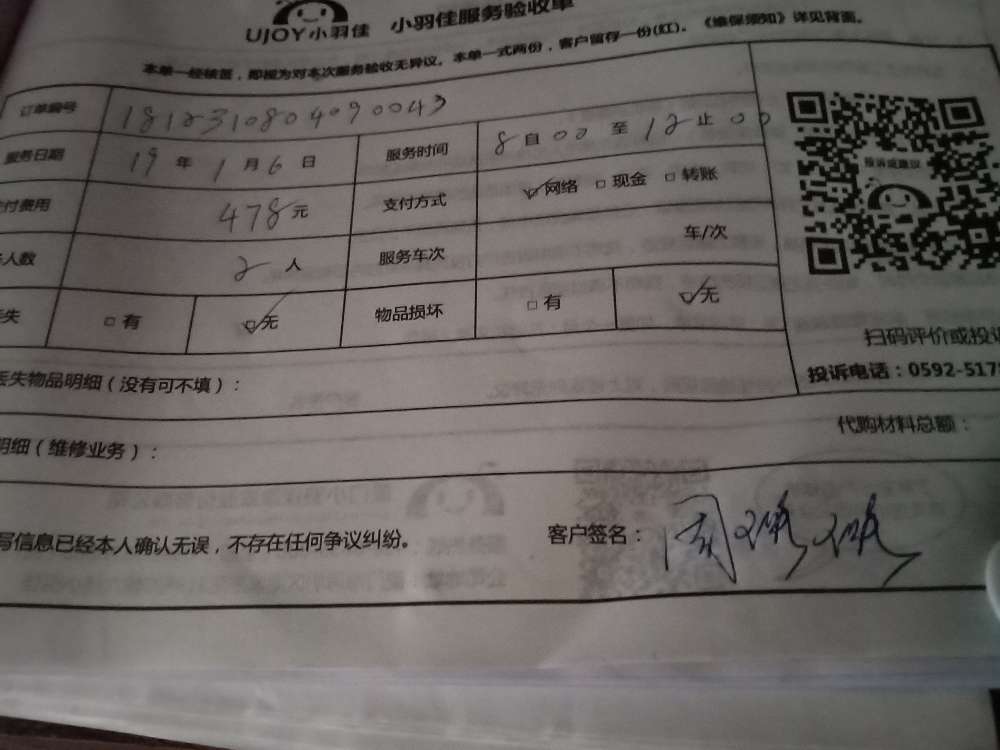 UJOY小羽佳 小羽佳服务验收单
本单一经核签，即视为对本次服务验收无异议。本单一式两份，客户留存一份(红)。《维保须知》详见背面。
订单编号 1812310804090043
服务日期 19 年 1 月 6 日 服务时间 8 自 00 至 12 止 00
付费用 478 元 支付方式 ☑网络 □现金 □转账
人数 2 人 服务车次 车/次
失 □有 ☑无 物品损坏 □有 ☑无
投诉或建议
扫码评价或投诉
投诉电话：0592-517
丢失物品明细（没有可不填）：
代购材料总额：
明细（维修业务）：
写信息已经本人确认无误，不存在任何争议纠纷。 客户签名：